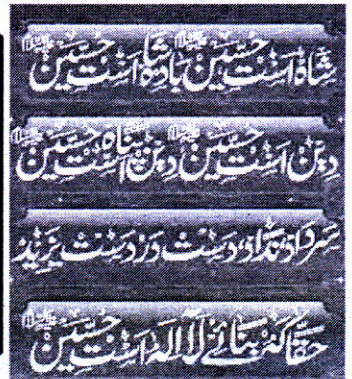 شاہ است حسین بادشاہ است حسین
دین است حسین دین پناہ است حسین
سر داد نداد دست در دست یزید
حقا کہ بنائے لا الہ است حسین